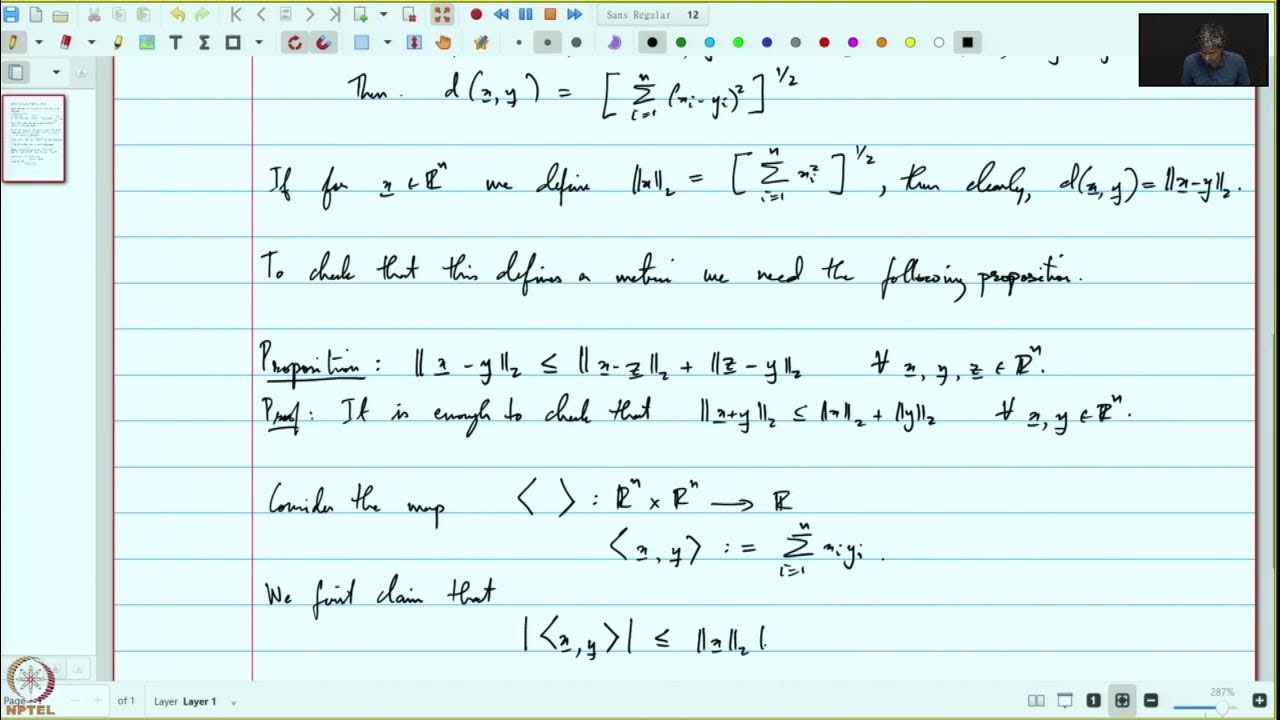 Sans Regular 12
Then. d(x, y) = [ ∑_{i=1}^{n} (x_i - y_i)^2 ]^{1/2}
If for x ∈ ℝ^n we define ‖x‖_2 = [ ∑_{i=1}^{n} x_i^2 ]^{1/2}, then clearly, d(x, y) = ‖x-y‖_2.
To check that this defines a metric we need the following proposition.
Proposition: ‖x - y‖_2 ≤ ‖x-z‖_2 + ‖z - y‖_2 ∀ x, y, z ∈ ℝ^n.
Proof: It is enough to check that ‖x+y‖_2 ≤ ‖x‖_2 + ‖y‖_2 ∀ x, y ∈ ℝ^n.
Consider the map ⟨ ⟩ : ℝ^n × ℝ^n → ℝ
⟨x, y⟩ := ∑_{i=1}^{n} x_i y_i.
We first claim that
|⟨x, y⟩| ≤ ‖x‖_2 |
NPTEL
Page
of 1
Layer Layer 1
287%